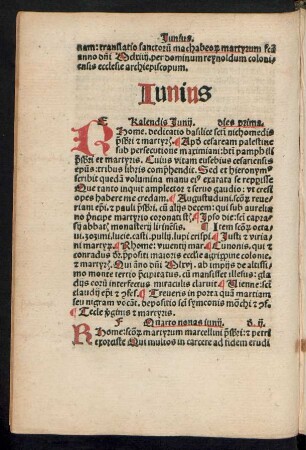 Junius.
nam: translatio sanctorū machabeoꝝ martyrum fcā
anno dn̄i Mclxiiij. per dominum reynoldum coloni
ensis ecclesie archiepiscopum.
Iunius
E Kalendis Junij. dies prima.
Rhome. dedicatio basilice scti nichomedis
p̄sbri & martyrꝭ ¶ Apd̄ cesaream palestine
sub persecutione maximiani: bti pamphili
p̄sbri et martyris. Cuius vitam eusebius cesariensis
ep̄us: tribus libris comp̄hendit. Sed et hieronym̄
scribit quedā volumina manu eiꝰ exarata se reppisse
Que tanto inquit amplector et seruo gaudio: vt cresi
opes habere me credam. ¶ Augustoduni: sctoꝝ reue
riani et pauli p̄sbri. cū alijs decem: qui sub aurelia
no p̄ncipe martyrio coronati st̄. ¶ Ipso die: sci capra
sij abbatꝭ monasterij lirinēsis. ¶ Item sctoꝝ octa
ui. zozimi. lucie. casti. pauli. lupi crispi. ¶ Justi & viria
ni martyrꝝ ¶ Rhome: viuencij mrꝭ ¶ Cunonis. qui &
conradus dr̄. ppositi maioris ecclesie agrippine colonie.
et martyris. Qui āno dn̄i Mlxvj. ab impijs de altissi
mo monte tercio p̄cipitatus. cū mansisset illesus: gla
dijs corū interfectus miraculis claruit ¶ Vienne: sci
claudij ep̄i & ꝯfes. ¶ Treueris in porta quā martiam
seu nigram vocāt. depositio sci symeonis mōchi & ꝯf.
¶ Tecle v̓ginis & martyris.
F Quarto nonas iunij. B. ij.
Rhome: sctoꝝ martyrum marcellini p̄sbri: et petri
exorciste Qui multos in carcere ad fidem erudi